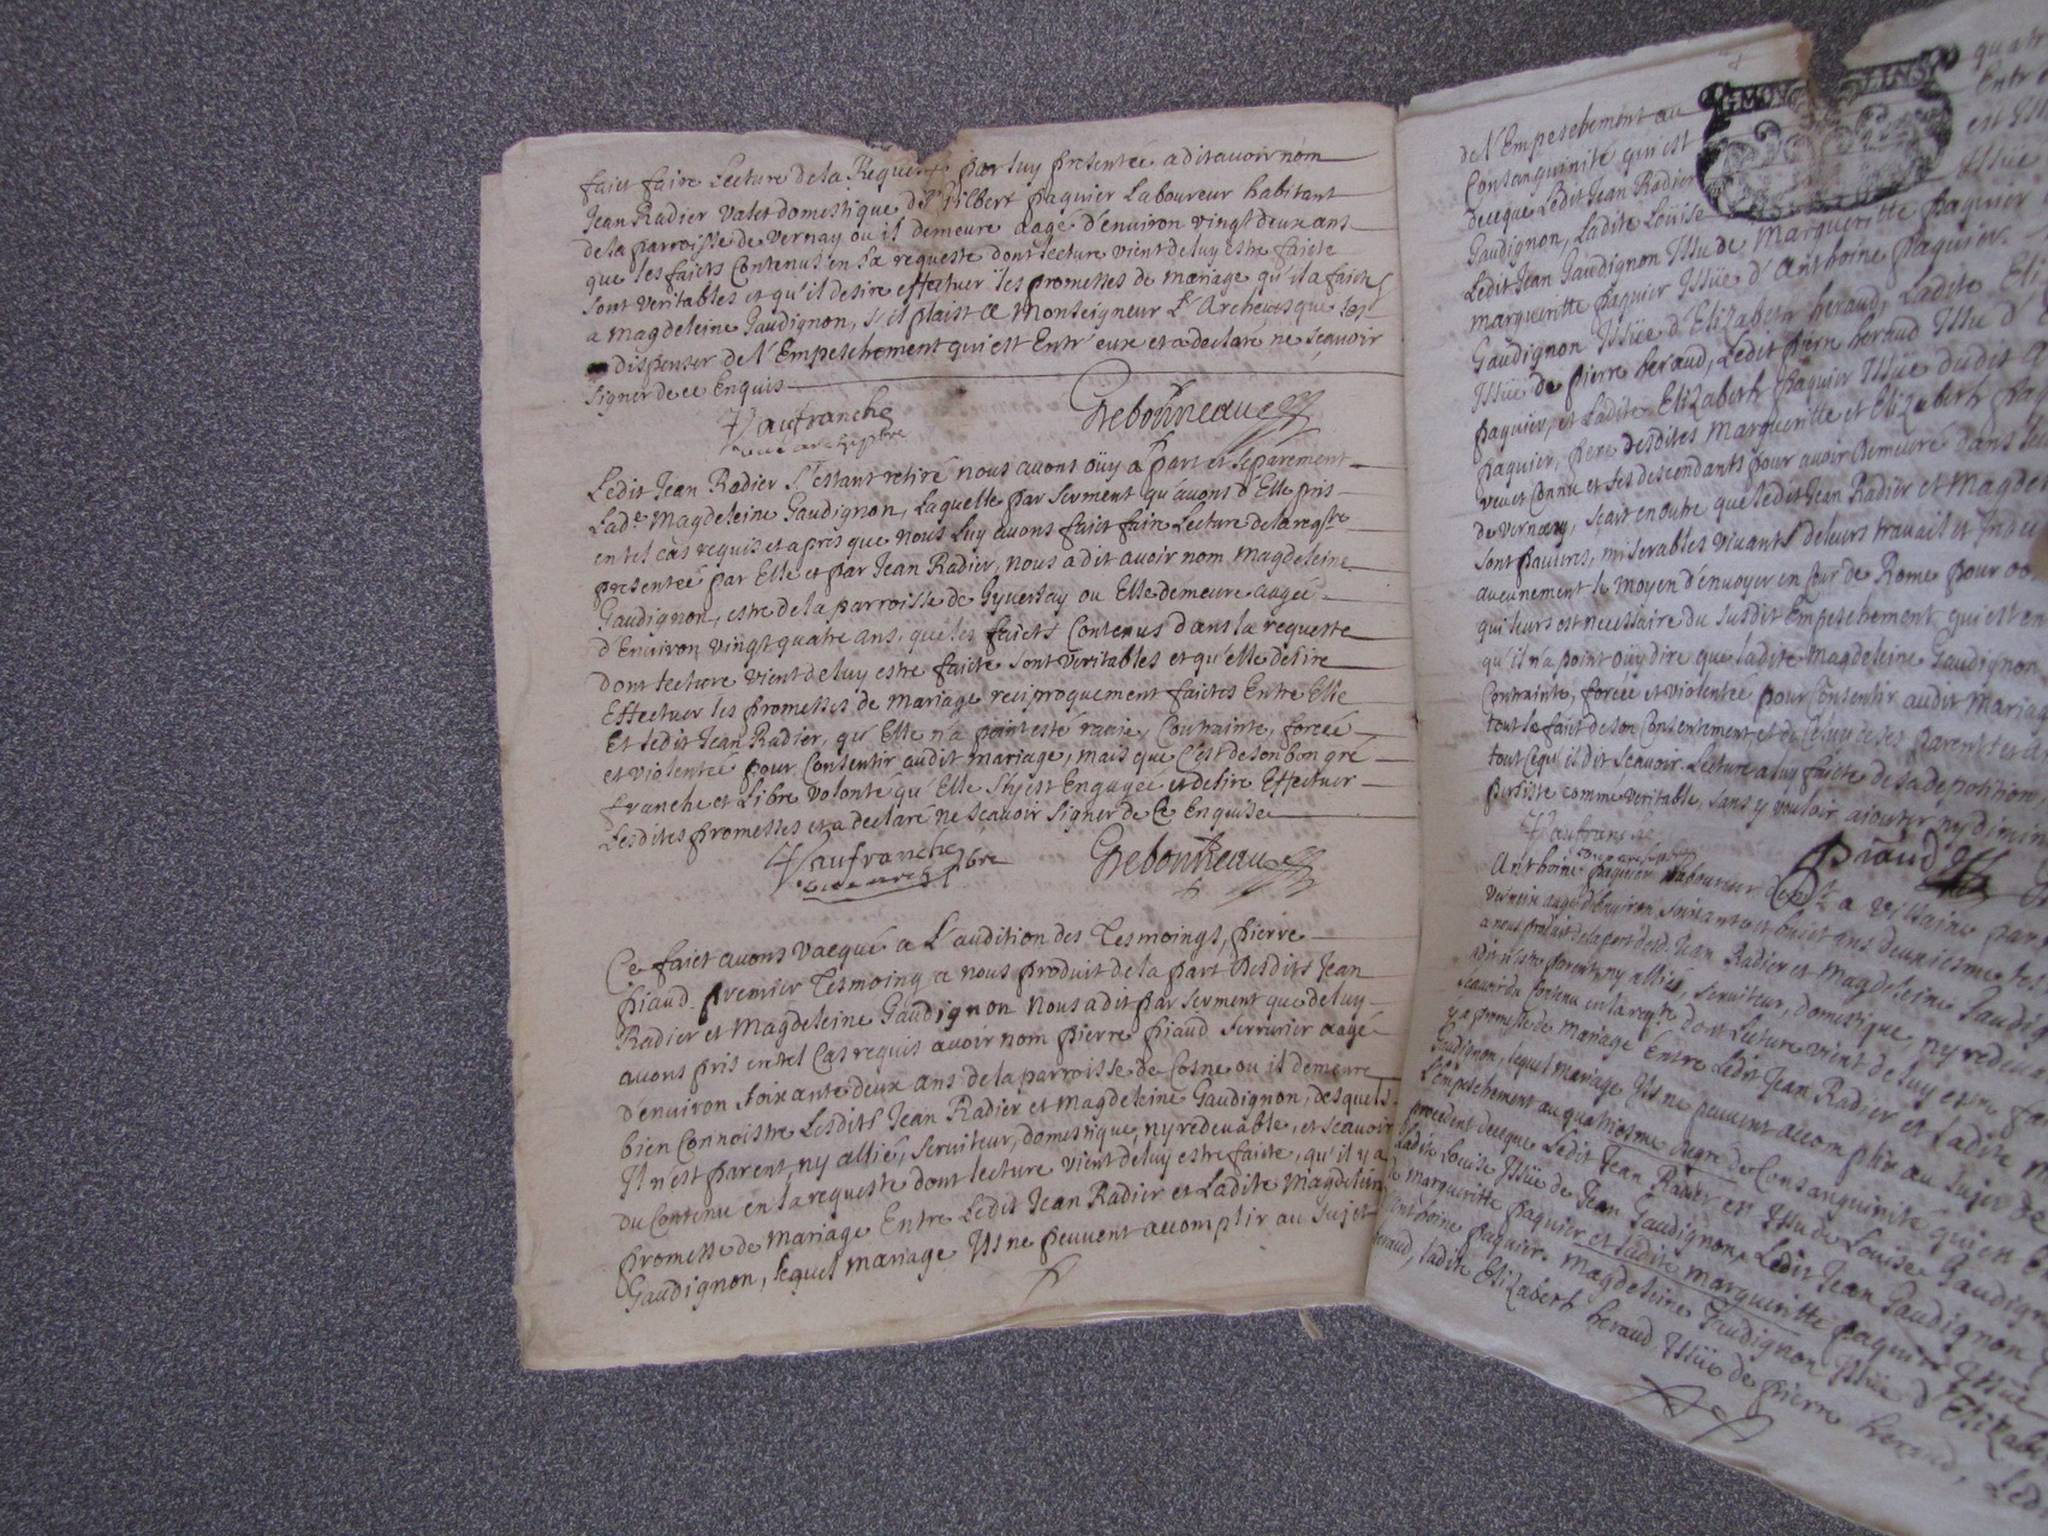 faict faire Lecture de la Requeste par luy presentée a dit avoir nom
Jean Radier valet domestique de Gilbert paquier Laboureur habitant
de la parroisse de vernay ou il demeure aagé d'environ vingt deux ans
que les faicts Contenus en sa requeste dont lecture vient de luy estre faicte
sont veritables et qu'il desire effectuer les promesses de mariage qu'il a faictes
a Magdeleine Gaudignon, s'il plaist a Monseigneur L'Archevesque les
dispenser de l'Empeschement qui est Entr'eux et a declaré ne sçavoir
signer de ce Enquis
Vaufranche
curé archiprbre
Grebonneau
Ledit Jean Radier s'estant retiré nous avons oüy a part et separement
Lad.e Magdeleine Gaudignon, Laquelle par serment qu'avons d'Elle pris
en tel cas requis et apres que nous Luy avons faict faire Lecture de la reqste
presenteé par Elle et par Jean Radier, nous a dit avoir nom Magdeleine
Gaudignon, estre de la parroisse de Gyverlay ou Elle demeure aagéé
d'Environ vingt quatre ans, que les faicts Contenus dans la requeste
dont lecture vient de luy estre faicte sont veritables et qu'elle desire
Effectuer les promesses de Mariage reciproquement faictes Entre Elle
Et ledit Jean Radier, qu'Elle n'a point esté ravie, Contrainte, forcéé
et violenteé pour Consentir audit mariage, mais que C'est de son bon gré
franche et Libre volonté qu'Elle s'y est Engagéé et desire Effectuer
Lesdites promesses et a declaré ne scavoir signer de Ce Enquise
Vaufranche
curé archiprbre
Grebonneau
Ce faict avons vacqué a L'audition des Tesmoings, pierre
piaud premier Tesmoing a nous produit de la part desdits Jean
Radier et Magdeleine Gaudignon Nous a dit par serment que de luy
avons pris en tel Cas requis avoir nom pierre piaud serrurier aagé
d'environ soixante deux ans de la parroisse de Cosne ou il demeure
bien Connoistre Lesdits Jean Radier et Magdeleine Gaudignon, desquels
Il n'est parent, ny allié, serviteur, domestique, ny redevable, et scavoir
du Contenu en la requeste dont lecture vient de luy estre faicte, qu'il y a
promesse de mariage Entre Ledit Jean Radier et Ladite Magdeleine
Gaudignon, lequel mariage Ils ne peuvent accomplir au sujet
de l'Empeschement au
Consanguinité qui est
decque Ledit Jean Radier
Gaudignon, Ladite Loüise
Ledit Jean Gaudignon Issu de Margueritte paquier
Margueritte paquier Issüe d'Anthoine paquier
Gaudignon Issüe d'Elizabeth heraud, Ladite Eli
Issüe de pierre heraud, Ledit pierre heraud Issu d'E
paquier, et Ladite Elizabeth paquier Issüe dudit A
paquier, pere desdites Margueritte et Elizabeth paq
veu et Connu et ses descendants pour avoir Demeuré dans
de vernay, scait en outre que ledit Jean Radier et Magdel
sont pauvres, miserables vivants de leurs travail et
aucunement le moyen d'envoyer en Cour de Rome pour
qui leurs est necessaire du susdit Empeschement qui est en
qu'il n'a point oüy dire que ladite Magdeleine Gaudignon
Contrainte, forcéé et violentéé pour Consentir audit mariag
tout se fait de son Consentement et de Celuy de ses parents et
tout Ce qu'il dit scavoir. Lecture a luy faicte de sa deposition,
persiste comme veritable, sans y vouloir ajouter ny dimin
Vaufranche
Piaud
Anthoine paquier Laboureur demt a Villaine par
aagé d'environ soixante et huict ans deuxiesme tes
a nous produit de la part desd. Jean Radier et Magdeleine Gaudig
a dit n'estre parent, ny allié, serviteur, domestique, ny redeva
scavoir du Contenu en la reqte dont Lecture vient de luy estre fa
y a promesse de Mariage Entre Ledit Jean Radier et Ladite M
Gaudignon, lequel mariage Ils ne peuvent accomplir au sujet de
l'empeschement au quatriesme degré de Consanguinité qui est En
procedent decque Ledit Jean Radier est Issu de Louise Gaudign
Ladite Louise Issüe de Jean Gaudignon, Ledit Jean Gaudignon
de Margueritte paquier et ladite Margueritte paquier Issüe
d'Anthoine paquier. Magdeleine Gaudignon Issüe d'Elizabe
heraud, ladite Elizabeth heraud Issüe de pierre heraud, Led